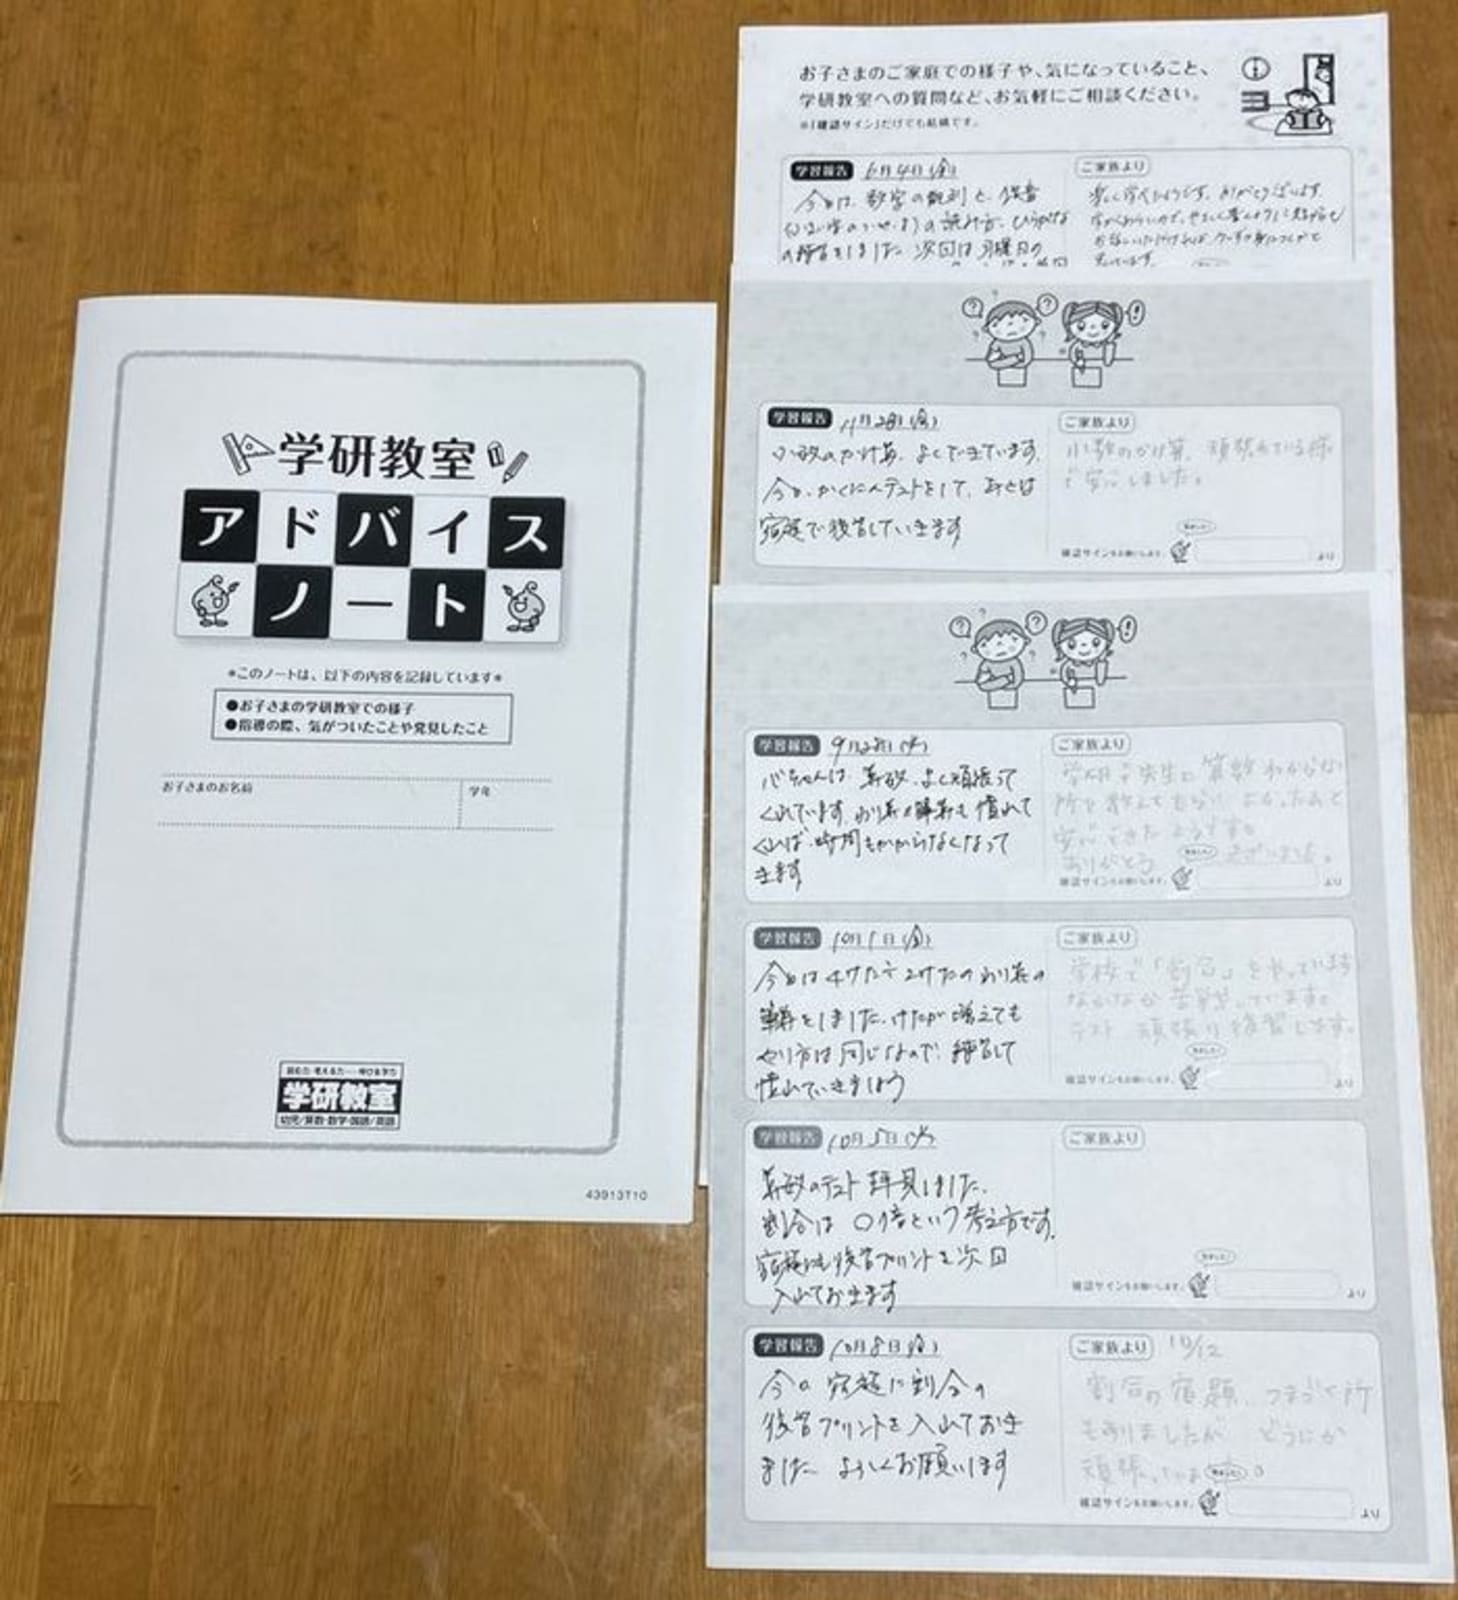 学研教室
アドバイス
ノート
*このノートは、以下の内容を記録しています*
●お子さまの学研教室での様子
●指導の際、気がついたことや発見したこと
お子さまのお名前
学年
学研教室
幼児/算数・数学・国語/英語
43913T10
お子さまのご家庭での様子や、気になっていること、
学研教室への質問など、お気軽にご相談ください。
※「確認サイン」だけでも結構です。
学習報告 6月4日(金)
今日は、数字の
の練習をしました 次回は月曜日の
ご家族より
ありがとうございます。
学習報告 11月2日(金)
小数のかけ算、よくできています。
今日、かくにんテストをして、あとは
宿題で復習していきます
ご家族より
小数のかけ算、頑張れている様
で安心しました。
確認サインをお願いします。
より
学習報告 9月28日(火)
算数、よく頑張って
くれています わり算の筆算も慣れて
くれば、時間もかからなくなって
きます
ご家族より
算数わからない
所を教えてもらい よかったと
安心できたようです。
ありがとう ございました。
確認サインをお願いします。
より
学習報告 10月1日(金)
今日は4けた÷2けたのわり算の
筆算をしました。けたが増えても
やり方は同じなので、練習して
慣れていきましょう
ご家族より
学校で「割合」をやっています
なかなか苦戦しています。
テスト 頑張り 復習します。
確認サインをお願いします。
より
学習報告 10月5日(火)
算数のテスト拝見しました。
割合は 〇倍という考え方です。
宿題にも復習プリントを次回
入れておきます
ご家族より
確認サインをお願いします。
より
学習報告 10月8日(金)
今日 宿題に割合の
復習プリントを入れておき
ました よろしくお願いします
ご家族より 10/12
割合の宿題、つまづく所
もありましたが どうにか
確認サインをお願いします。
より